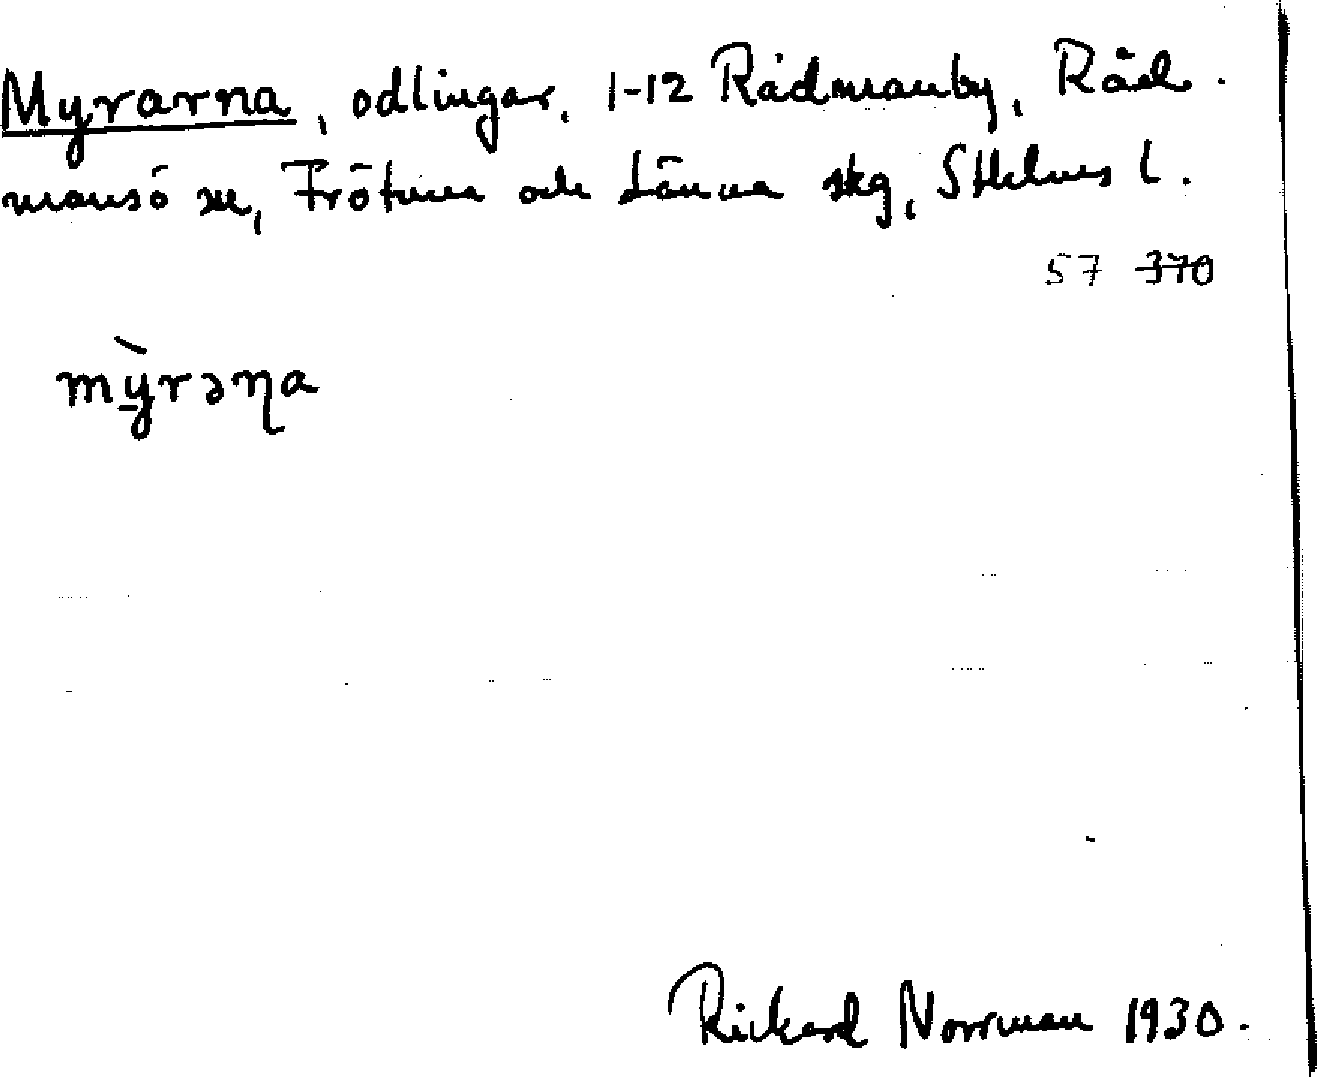 Myrarna, odlingar, 1-12 Rådmanby, Råd.
mansö sn, Frötuna och Länna skg, Sthlms l.
57 370
mỳ̱rəɳa
Rickard Norrman 1930.